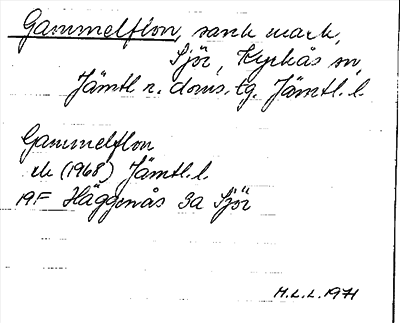 Gammelflon, sank mark,
Sjör, Kyrkås sn,
Jämtl n. doms. tg. Jämtl. l.
Gammelflon
ek (1968) Jämtl. l.
19F Häggenås 3a Sjör
M.L.L. 1971